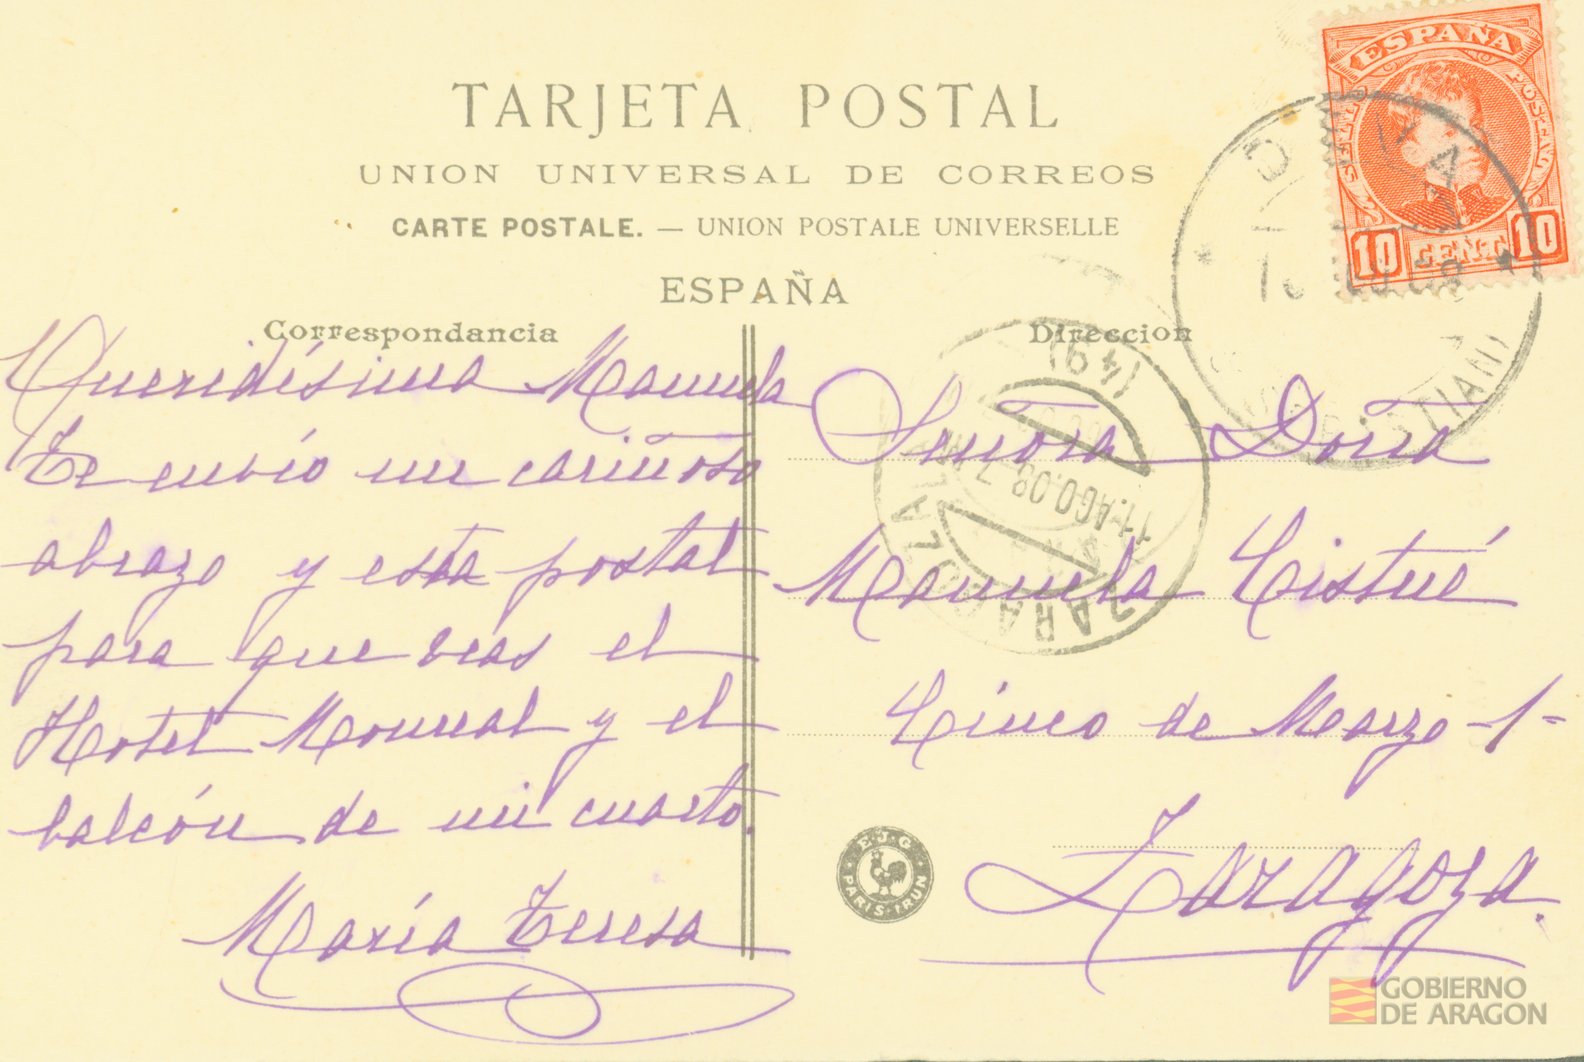 TARJETA POSTAL
UNION UNIVERSAL DE CORREOS
CARTE POSTALE. — UNION POSTALE UNIVERSELLE
ESPAÑA
Correspondancia
Direccion
Queridísima Manuela
Te envío un cariñoso
abrazo y esta postal
para que veas el
Hotel Monreal y el
balcón de mi cuarto.
María Teresa
Señora Doña
Manuela Cistué
Cinco de Marzo -1-
Zaragoza.
ESPAÑA
10 CENT. 10
(49)
11.AGO.08-7
ZARAGOZA
E.J.G.
PARIS-IRUN
GOBIERNO
DE ARAGON